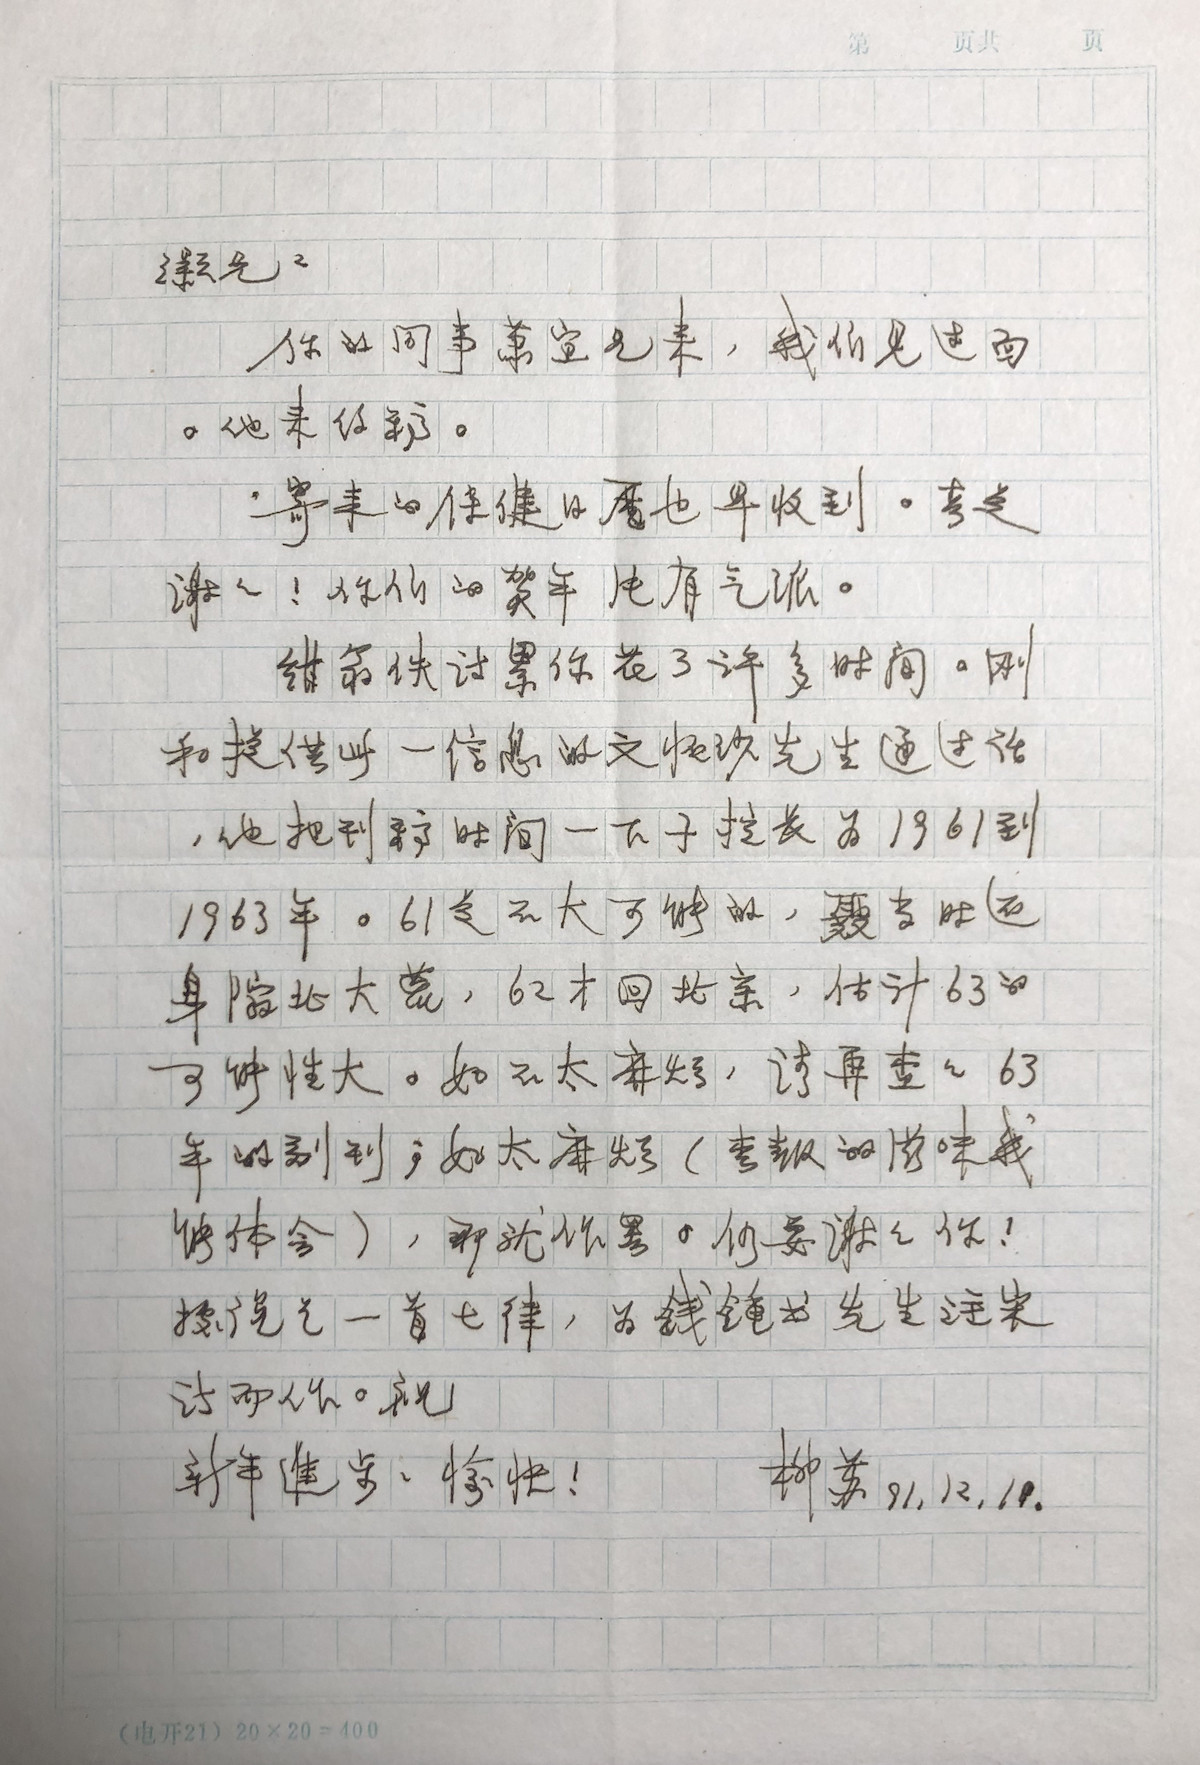 第 页共 页
灏兄：
你的同事萧宜兄来，我们见过面
。他来约稿。
寄来的保健日历也早收到。真是
谢々！你们的贺年片有气派。
绀翁佚诗累你花了许多时间。刚
和提供此一信息的文怀沙先生通过话
，他把刊稿时间一下子拉长为1961到
1963年。61是不大可能的，聂当时还
身陷北大荒，62才回北京，估计63的
可能性大。如不太麻烦，请再查々63
年的副刊；如太麻烦（查报的滋味我
能体会），那就作罢。仍要谢々你！
据说是一首七律，为钱锺书先生注宋
诗而作。祝
新年進步、愉快！ 柳苏 91.12.19.
（电开21）20×20=400